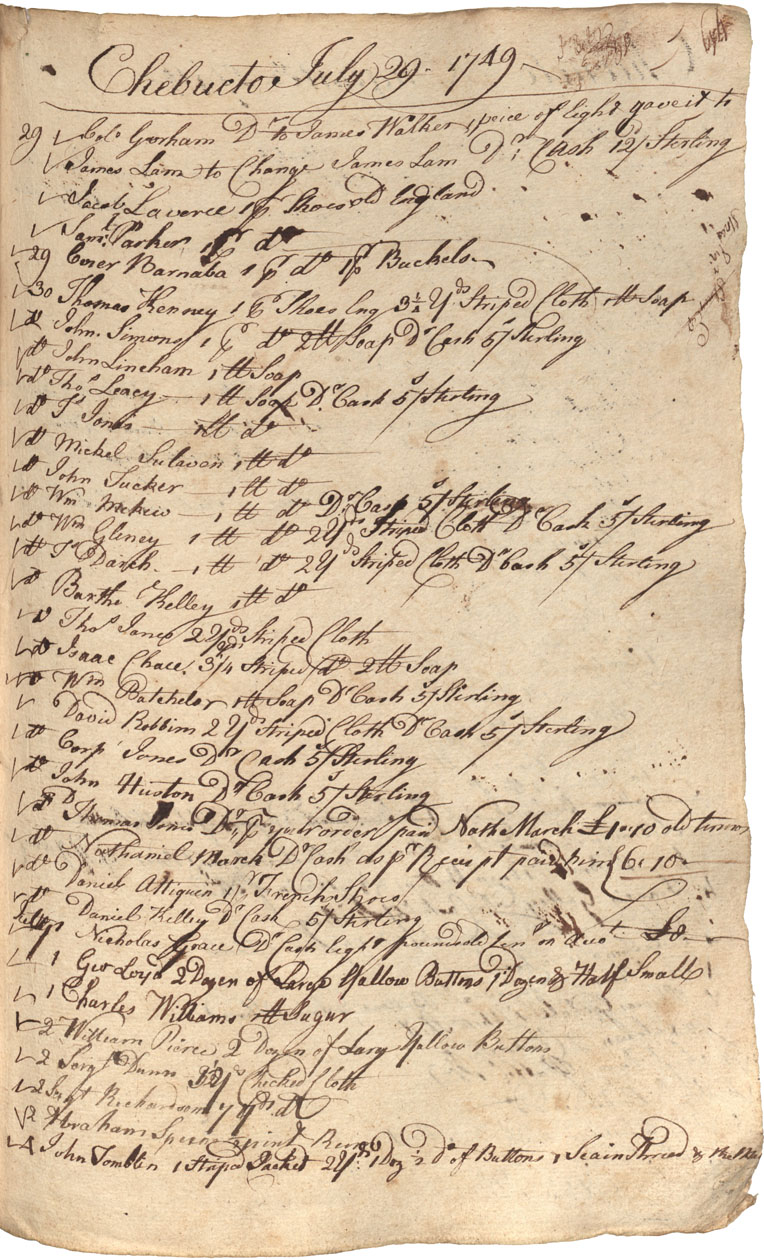 Chebucto July 29 1749
29 Colo Gorham Dr to James Walker 1 peice of light gave it to
James Lam to Change James Lam Dr Cash 12/ Sterling
Jacob Laverce 1 pr Shoes old England
Saml Parker 1 pr do
29 Coner Barnaba 1 pr do 1 pr Buckels
30 Thomas Kenney 1 pr Shoes Eng 3½ Yds Striped Cloth 1 tt Soap
do John Simons 1 pr do 2 tt Soap Dr Cash 5/ Sterling
do John Lincham 1 tt Soap
do Thos Leacy 1 tt Soap Dr Cash 5/ Sterling
do Js Jones 1 tt do
do Mickel Sulavan 1 tt do
do John Tucker 1 tt do
do Wm Mckew 1 tt do Dr Cash 5/ Sterling
do Wm Gleney 1 tt do 2 Yds Striped Cloth Dr Cash 5/ Sterling
do Js Darch 1 tt do 2 Yds Striped Cloth Dr Cash 5/ Sterling
do Barthe Kelley 1 tt do
do Thos Jones 2 Yds Striped Cloth
do Isaac Chace 3/4 Striped do 2 tt Soap
do Wm Batchelor 1 tt Soap Dr Cash 5/ Sterling
do David Robbins 2 Yds Striped Cloth Dr Cash 5/ Sterling
do Corpl Jones Dr Cash 5/ Sterling
do John Huston Dr Cash 5/ Sterling
do Thomas Jones Dr pr your order paid Nath March £1=10 old tenor
do Nathaniel March Dr Cash as pr Receipt paid him 6=10
do Daniel Attiquin 1 pr French Shoes
do Daniel Kelley Dr Cash 5/ Sterling
Nicholas Grace Dr Cash Eight pounds old tenr on Acot £8
1 Geo Loyd 2 Dozen of Large Yallow Buttons 1 Dozen & Half Small
1 Charles Williams 1 tt Sugur
2 William Pierce 2 Dozen of Larg Yallow Buttons
2 Sergt Dunn 3 Yds Checked Cloth
2 Sergt Richardson 7 Yds do
2 Abraham Speen 1 pint Rum
4 John Tomblin 1 Striped Jacket 2 Yds 1 Doz ½ do of Buttons 1 Scain Thread &